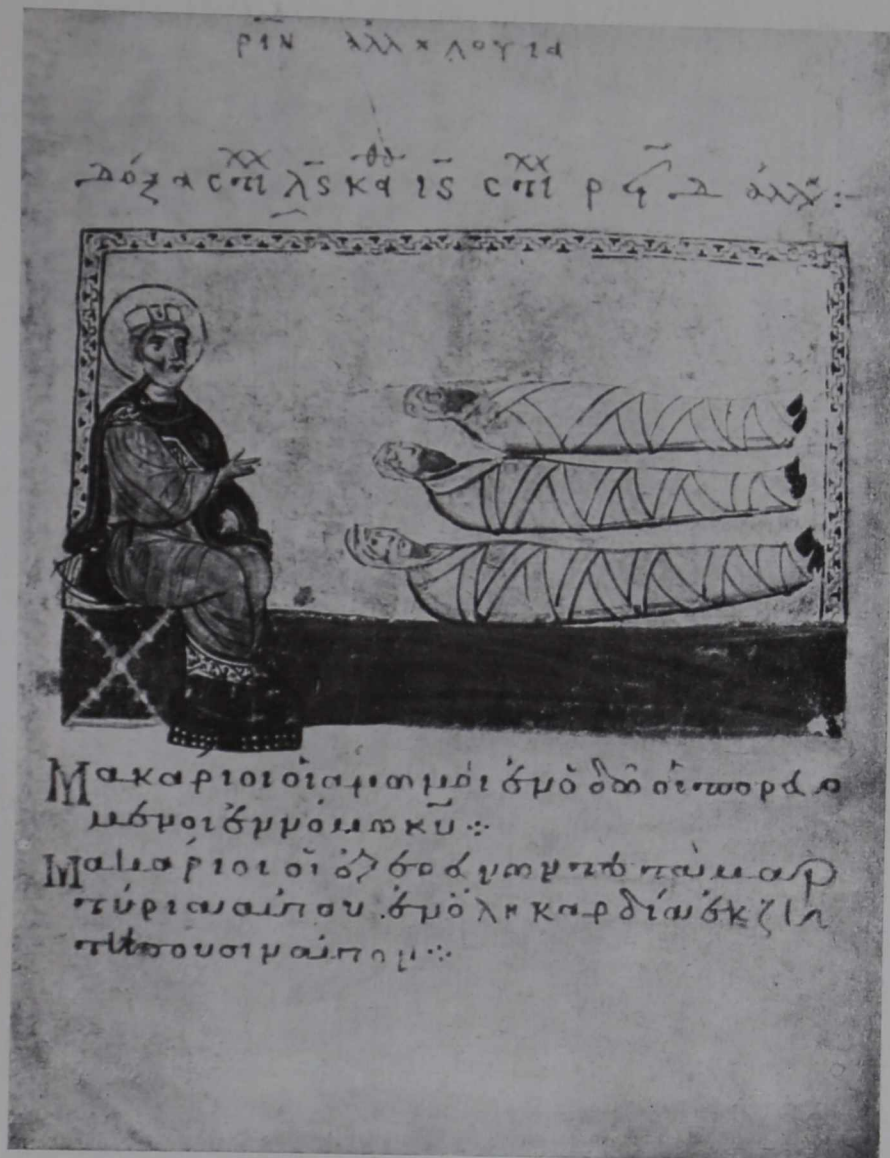 ριν ἀλληλούια
Δόξα στιχ λς καθ ις στιχ ρδ ἀλλ :
Μακάριοι οἱ ἄμωμοι ἐν ὁδῷ οἱ πορευό
μενοι ἐν νόμω κυ ⁘
Μακάριοι οἱ ἐξερευνῶντες τὰ μαρ
τύρια αὐτοῦ ἐν ὅλη καρδία ἐκζη
τήσουσιν αὐτόν ⁘